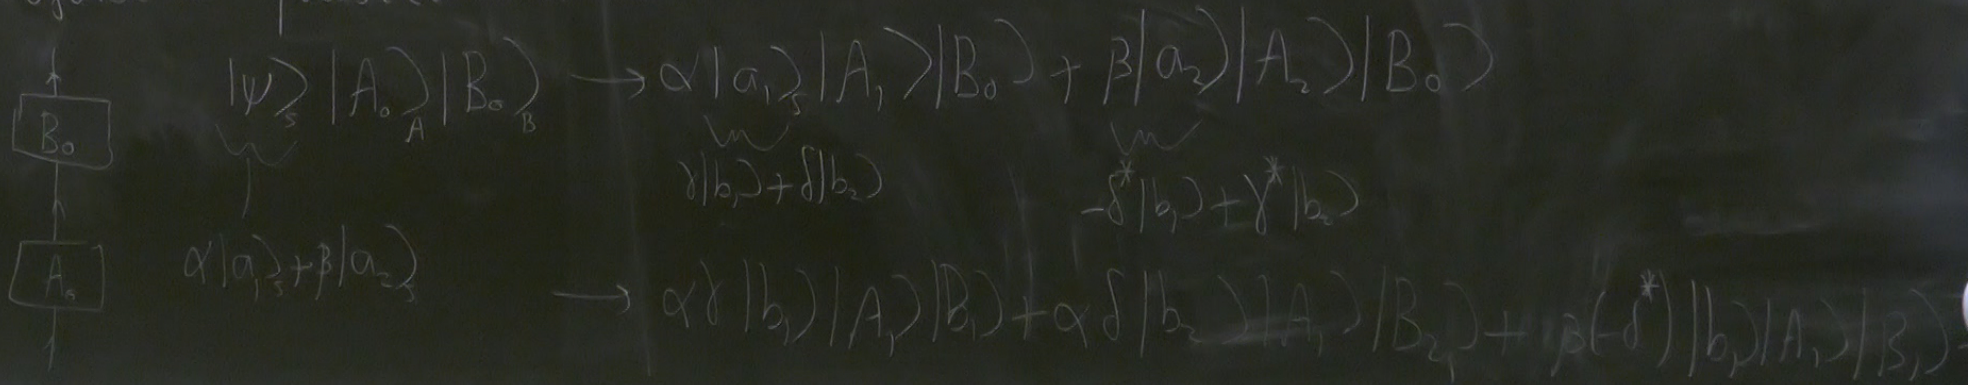 |ψ⟩_S |A₀⟩_A |B₀⟩_B → α|a₁⟩_S |A₁⟩|B₀⟩ + β|a₂⟩|A₂⟩|B₀⟩
B₀
γ|b₁⟩+δ|b₂⟩ -δ*|b₁⟩+γ*|b₂⟩
α|a₁⟩_S+β|a₂⟩_S
A₀
→ αγ|b₁⟩|A₁⟩|B₁⟩+αδ|b₂⟩|A₁⟩|B₂⟩+β(-δ*)|b₁⟩|A₁⟩|B₁⟩